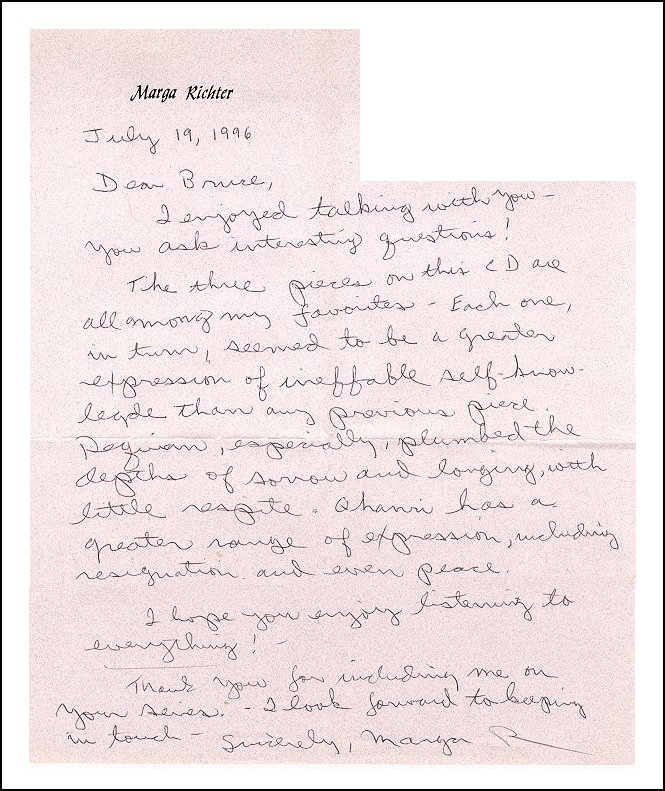 Marga Richter
July 19, 1996
Dear Bruce,
I enjoyed talking with you –
you ask interesting questions!
The three pieces on this CD are
all among my favorites – Each one,
in turn, seemed to be a greater
expression of ineffable self-know-
legde than any previous piece.
Requiem, especially, plumbed the
depths of sorrow and longing, with
little respite. Qhanri has a
greater range of expression, including
resignation and even peace.
I hope you enjoy listening to
everything! –
Thank you for including me on
your series. – I look forward to keeping
in touch – Sincerely, Marga R